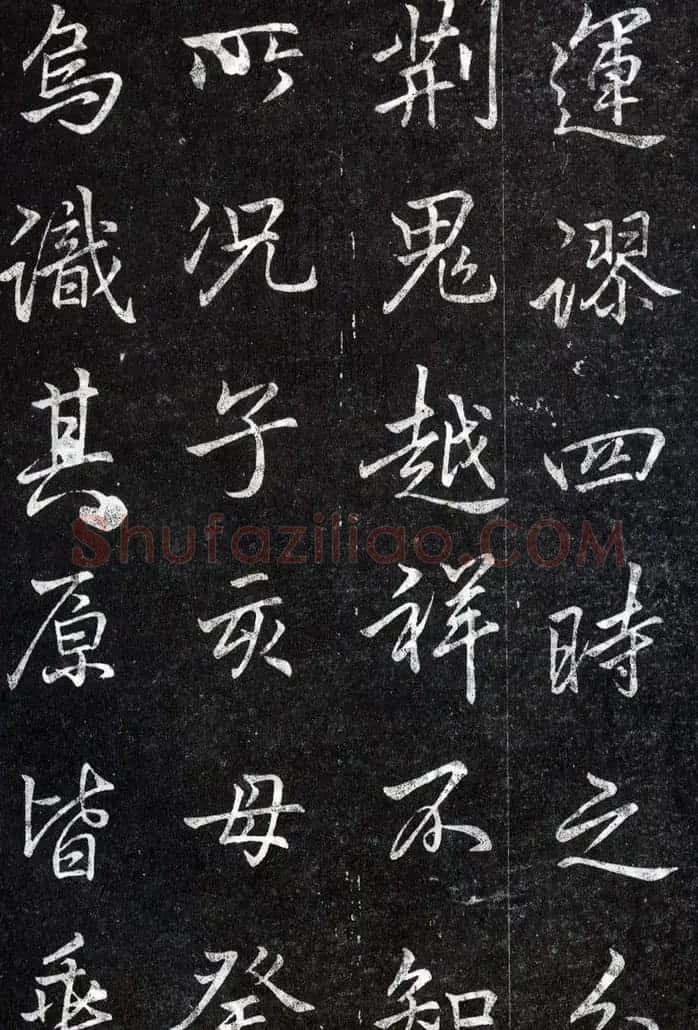 運謬四時之
荊鬼越祥不知
所況子亥母
烏識其原皆乘
Shufaziliao.COM